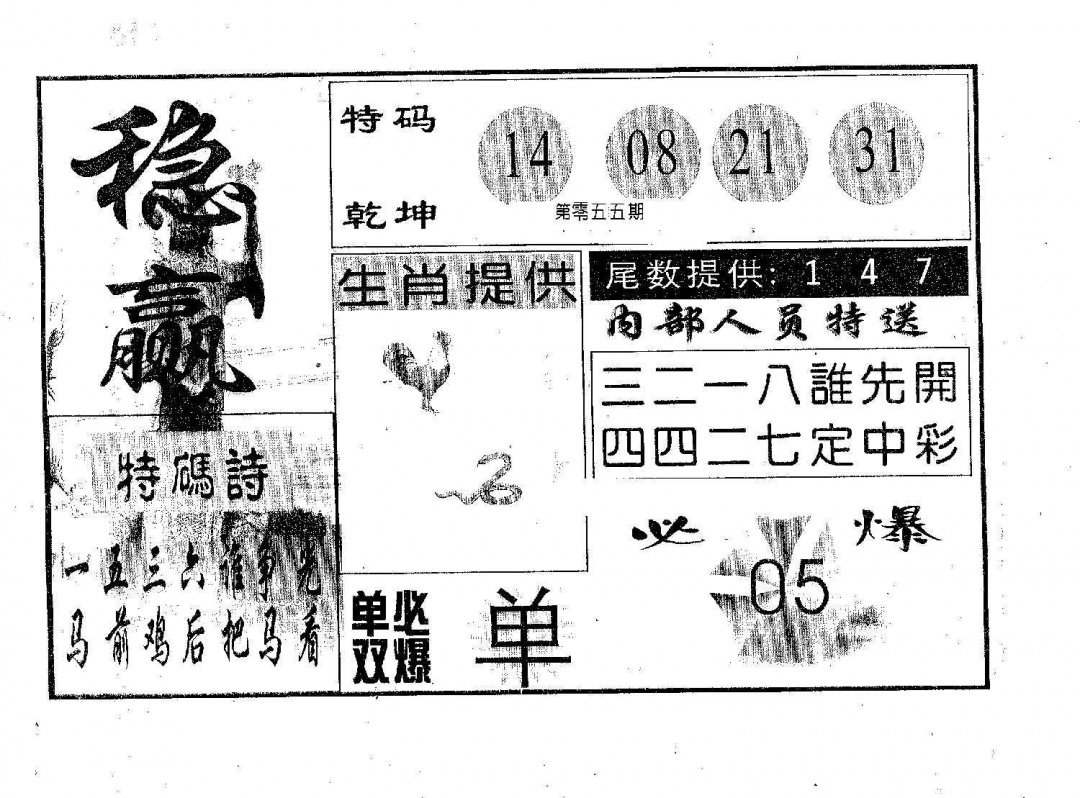 稳
赢
特码
乾坤
14 08 21 31
第零五五期
生肖提供
尾数提供：1 4 7
内部人员特送
三二一八誰先開
四四二七定中彩
特碼詩
一五三六谁争先
马前鸡后把马看
单必
双爆
单
必爆
05